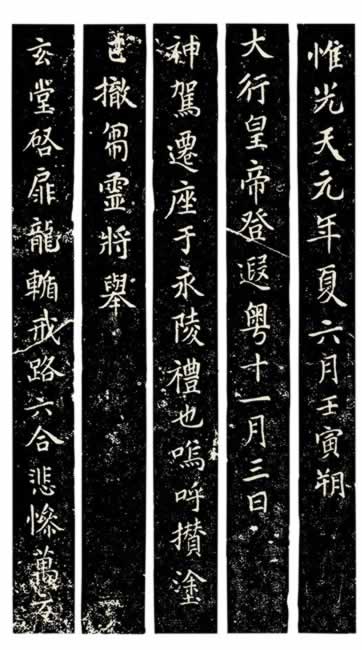 惟光天元年夏六月壬寅朔
大行皇帝登遐粵十一月三日
神駕遷座于永陵禮也嗚呼攢塗
已撤芻靈將舉
玄堂啓扉龍輴戒路六合悲慘萬方